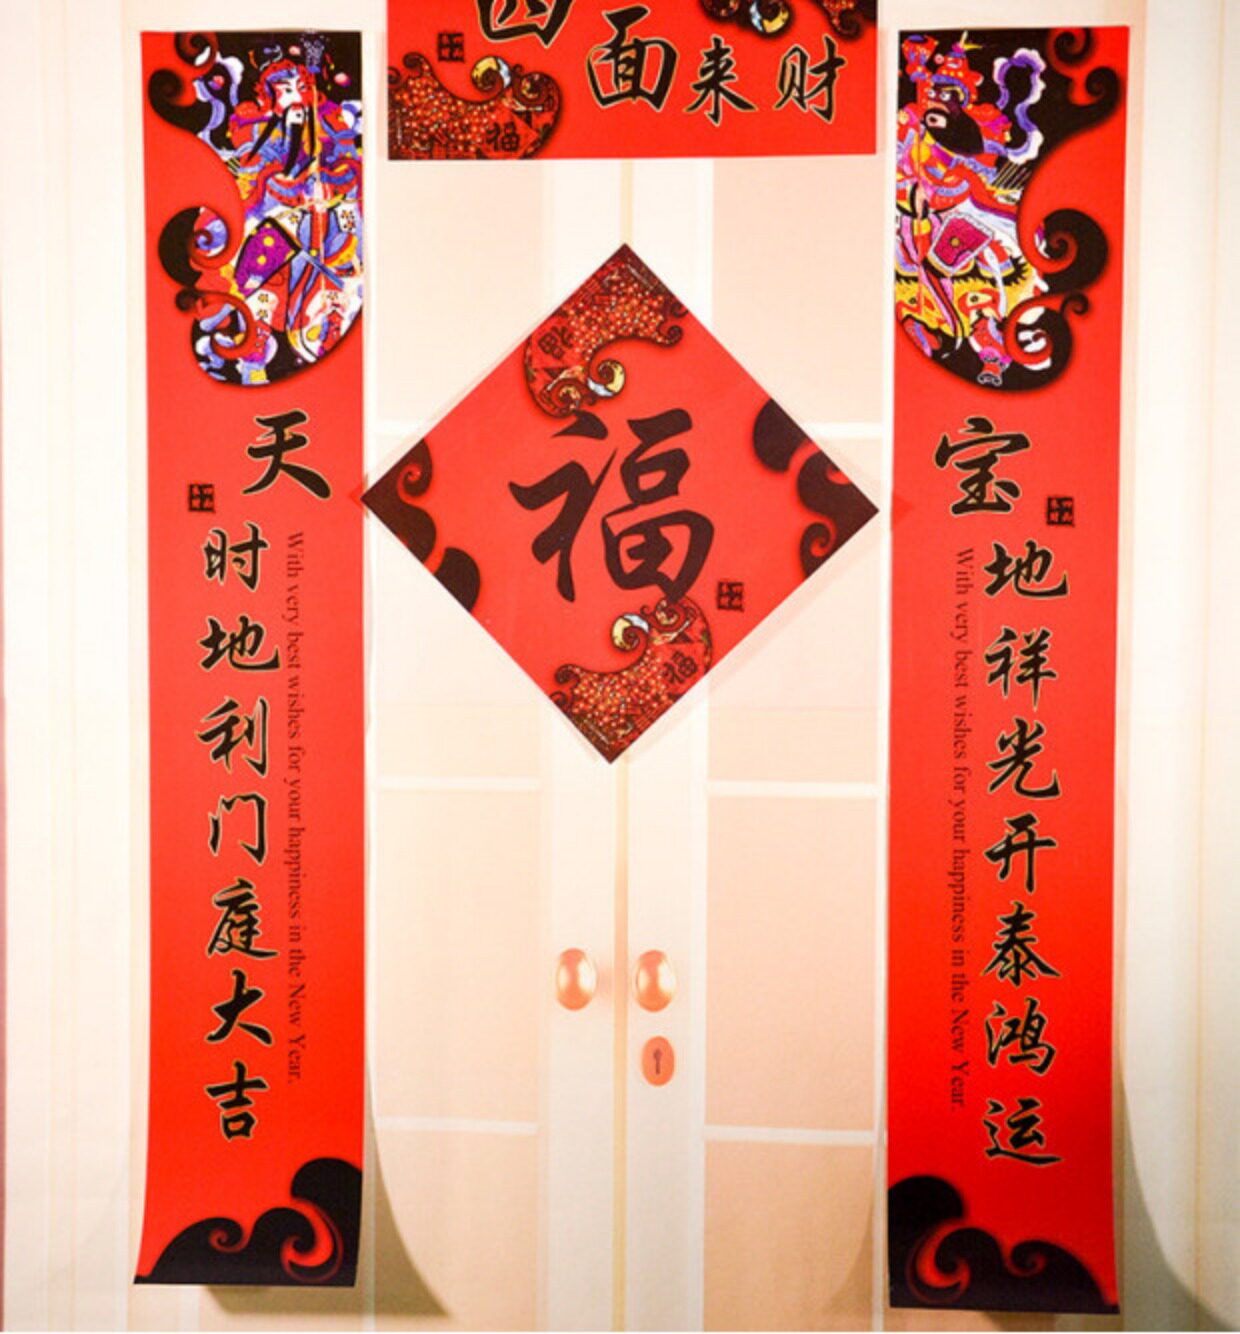 四面来财
宝地祥光开泰鸿运
With very best wishes for your happiness in the New Year.
福
福
福
天时地利门庭大吉
With very best wishes for your happiness in the New Year.